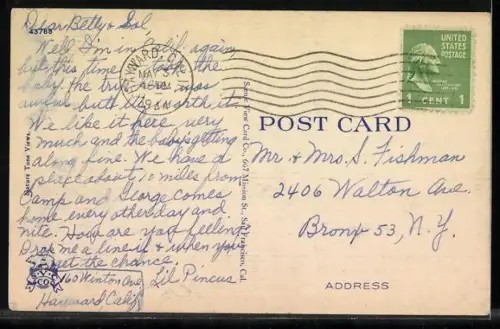 Dear Betty & Sol,
43788
Well I'm in Calif. again
but this time I took the
baby, the trip was
awful but worth it.
We like it here very
much and the baby is getting
along fine. We have a
place about 10 miles from
Camp and George comes
home every other day and
nite. How are you feeling?
Drop me a line if & when you
get the chance.
160 Winton Ave. Lil Pincus
Hayward, Calif.
HAYWARD, CAL.
MAR 3
9 AM
UNITED STATES
POSTAGE
1 CENT 1
POST CARD
Mr. & Mrs. S. Fishman
2406 Walton Ave.
Bronx 53, N.Y.
ADDRESS
Scenic View Card Co., 667 Mission St., San Francisco, Cal.
Nature Tone Views.